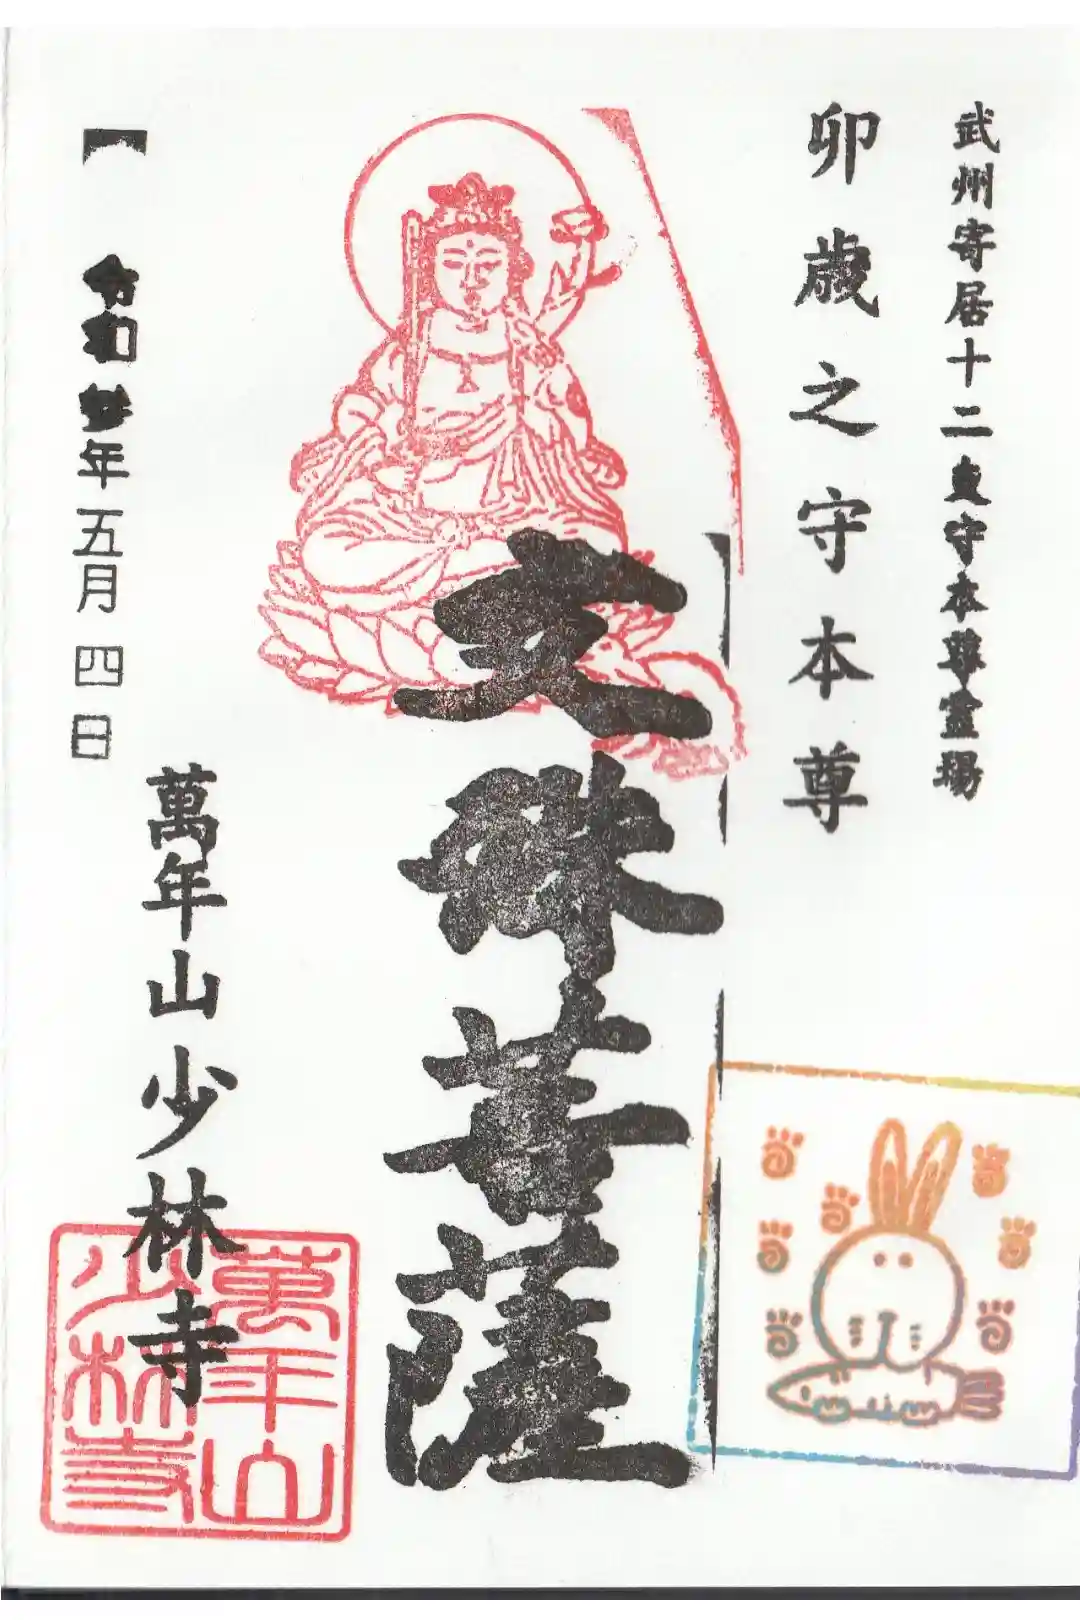 武州寄居十二支守本尊霊場
卯歳之守本尊
文殊菩薩
萬年山少林寺
令和 年五月四日
萬年山
少林寺